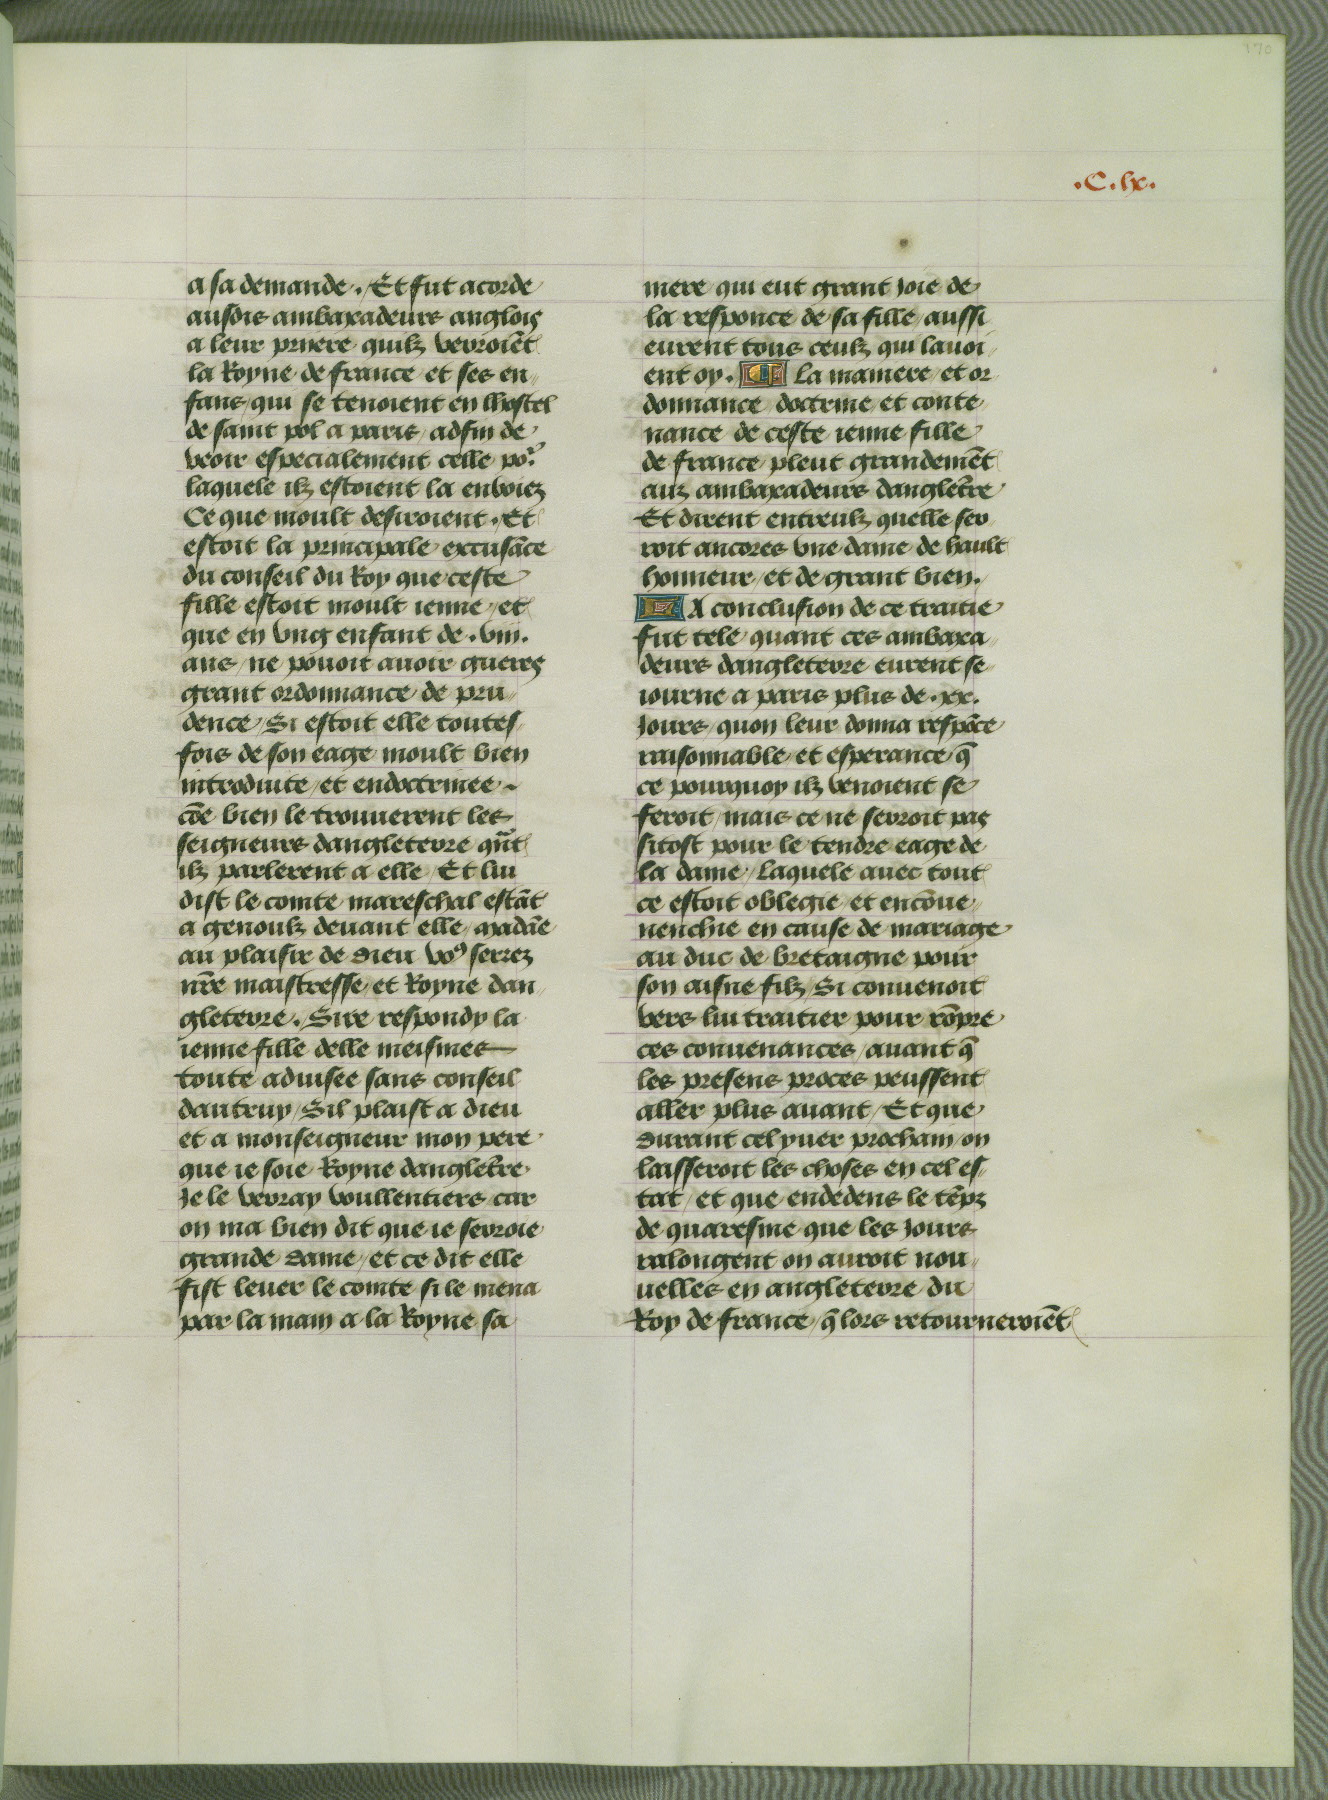 170
.C.lx.
a sa demande. Et fut acorde
ausdis ambaxadeurs anglois
a leur priiere quilz verroiẽt
la Royne de france et ses en
fans/ qui se tenoient en lhostel
de saint pol a paris/ adfin de
veoir especialement celle poʳ
laquele ilz estoient la enuoiez
Ce que moult desiroient. Et
estoit la principale excusãce
du conseil du Roy que ceste
fille estoit moult ienne/ et
que en vng enfant de .viii.
ans/ ne pouoit auoir gueres
grant ordonnance de pru
dence/ Si estoit elle toutes
fois de son eage moult bien
introduite/ et endoctrinee
cõe bien le trouuerent les
seigneurs dangleterre qũt
ilz parlerent a elle/ Et lui
dist le comte mareschal estãt
a genoulz deuant elle/ madãe
au plaisir de dieu voꝰ serrez
nr̃e maistresse/ et Royne dan
gleterre. Sire respondy la
ienne fille delle meismes
toute aduisee sans conseil
dautruy/ Sil plaist a dieu
et a monseigneur mon pere
que ie soie Royne dangletr̃e
Je le verray voullentiers/ car
on ma bien dit que ie serroie
grande dame/ et ce dit elle
fist leuer le comte si le mena
par la main a la Royne sa
mere qui eut grant Joie de
la responce de sa fille/ aussi
eurent tous ceulz qui lauoi
ent oy. La maniere/ et or
donnance/ doctrine/ et conte
nance de ceste ienne fille
de france/ pleut grandemẽt
auz ambaxadeurs dangletr̃e
Et dirent entreulz quelle ser
roit ancores vne dame de hault
honneur/ et de grant bien.
La conclusion de ce traitie
fut tele/ quant ces ambaxa
deurs dangleterre eurent se
iourne a paris plus de .xx.
Jours/ quon leur donna respõce
raisonnable/ et esperance q̃
ce pourquoy ilz venoient se
feroit/ mais ce ne serroit pas
sitost pour le tendre eage de
la dame/ Laquele auec tout
ce estoit oblegie/ et encõue
nenchie en cause de mariage
au duc de bretaigne pour
son aisne filz/ Si conuenoit
vers lui traitier pour rõpre
ces conuenances/ auant q̃
les presens proces peussent
aller plus auant/ Et que
durant cel yuer prochain/ on
laisseroit les choses en cel es
tat/ et que endedens le tẽps
de quaresme que les Jours
ralongent on auroit nou
uelles en angleterre du
Roy de france/ q̃ lors retourneroiẽt